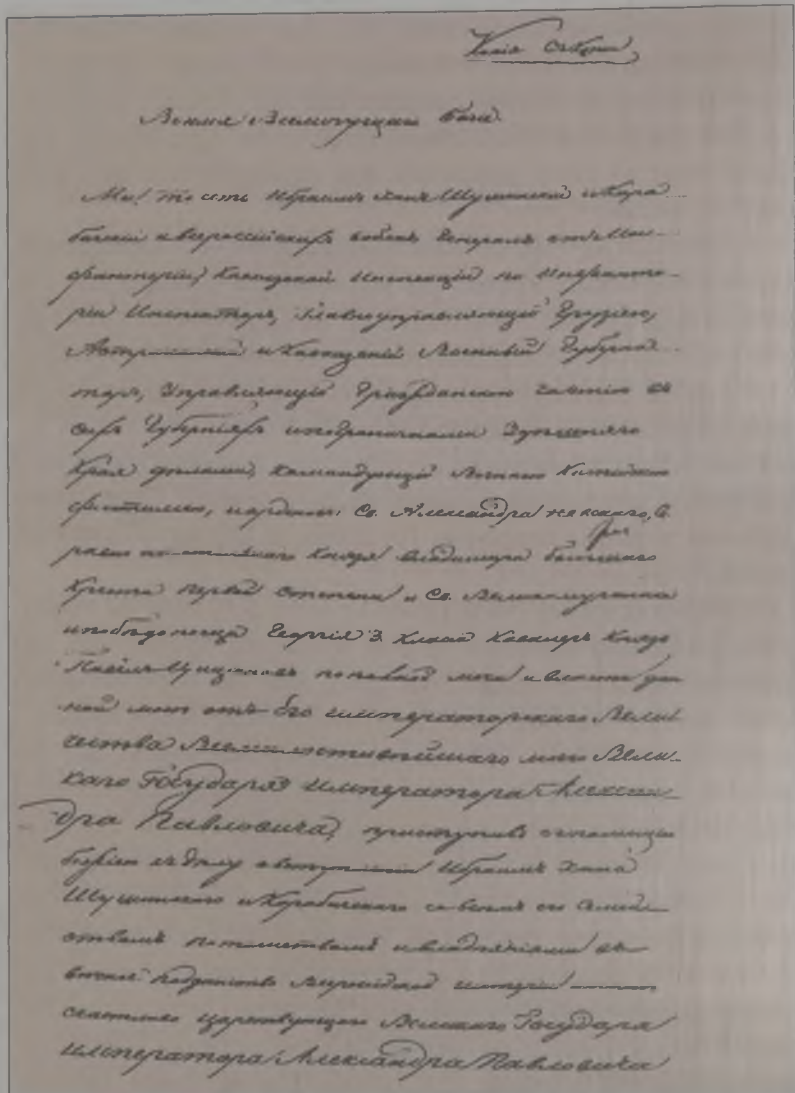 Копія
Во имя Всемогущаго Бога
Мы, то есть Ибраимъ ханъ Шушинской и Кара
бахскій и Всероссійскихъ войскъ Генералъ отъ Ин-
фантеріи, Кавказской Инспекціи по Инфанте-
ріи Инспекторъ, Главноуправляющій Грузіею,
и Кавказскій Военный Губерна
торъ, Управляющій Гражданскою частію въ
сихъ Губерніяхъ и пограничными здѣшняго
Края дѣлами, Командующій Военною Каспійскою
флотиліею, и орденовъ: Св. Александра Невскаго, Св.
равно Князя Владимира большаго
Креста первой степени и Св. Великомученика
и побѣдоносца Георгія 3. класса Кавалеръ Князь
Павелъ Циціановъ по полной мочи и власти дан
ной мнѣ отъ Его Императорскаго Вели
чества Всемилостивѣйшаго моего Вели-
каго Государя Императора Алексан-
дра Павловича, приступивъ съ помощію
божіею къ дѣлу о вступленіи Ибраимъ Хана
Шушинскаго и Карабахскаго со всемъ его семей-
ствомъ потомствомъ и владѣніями въ
вечное подданство Всероссійской Имперіи
счастливо царствующаго Великаго Государя
Императора Александра Павловича